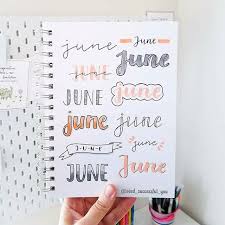 june
June
june
June
JUNE
june
june
june
J·U·N·E
june
JUNE
June